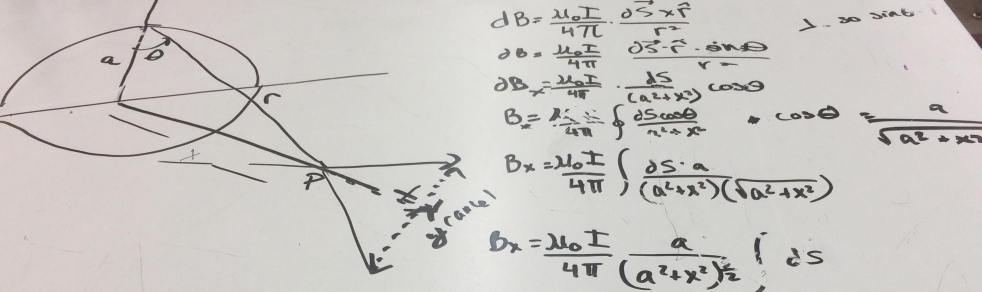 a
θ
r
x
P
x
y cancel
dB = μ₀I/4π · dS⃗ x r̂/r²
dB = μ₀I/4π dS⃗·r̂ · sinθ/r²
dBₓ = μ₀I/4π · dS/(a²+x²) cosθ
Bₓ = /4π ∮ dS cosθ/a²+x² • cosθ = a/√a²+x²
Bₓ = μ₀I/4π ∫ dS·a/(a²+x²)(√a²+x²)
Bₓ = μ₀I/4π a/(a²+x²)^3/2 ∫ dS